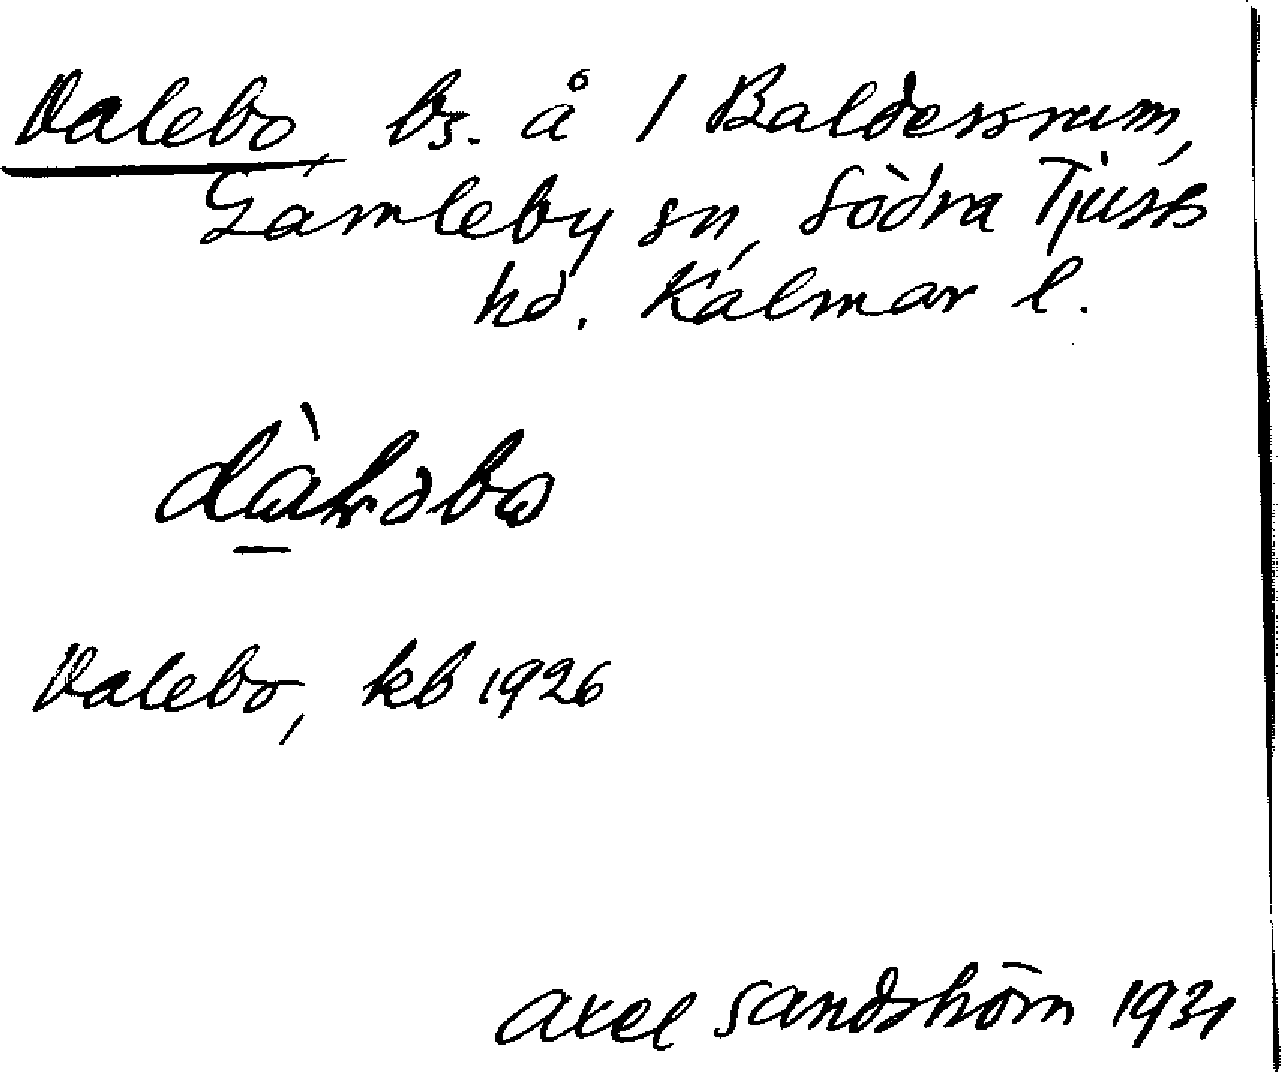 Valebo, bs. å 1 Baldersrum,
Gamleby sn, Södra Tjusts
hd. Kalmar l.
Valebo, kb 1926
Axel Sandström 1931